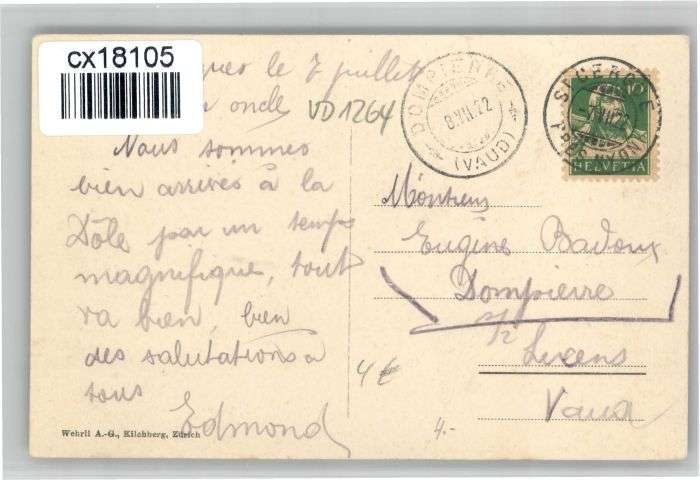 cx18105
le 7 juillet
oncle
VD1264
Nous sommes
bien arrivés à la
Dôle par un temps
magnifique, tout
va bien, bien
des salutations à
tous
Edmond
Wehrli A.-G., Kilchberg, Zürich
4 €
4.-
DOMPIERRE
8.VII.22
(VAUD)
10
HELVETIA
Monsieur
Eugène Badoux
Dompierre
s/
Lucens
Vaud